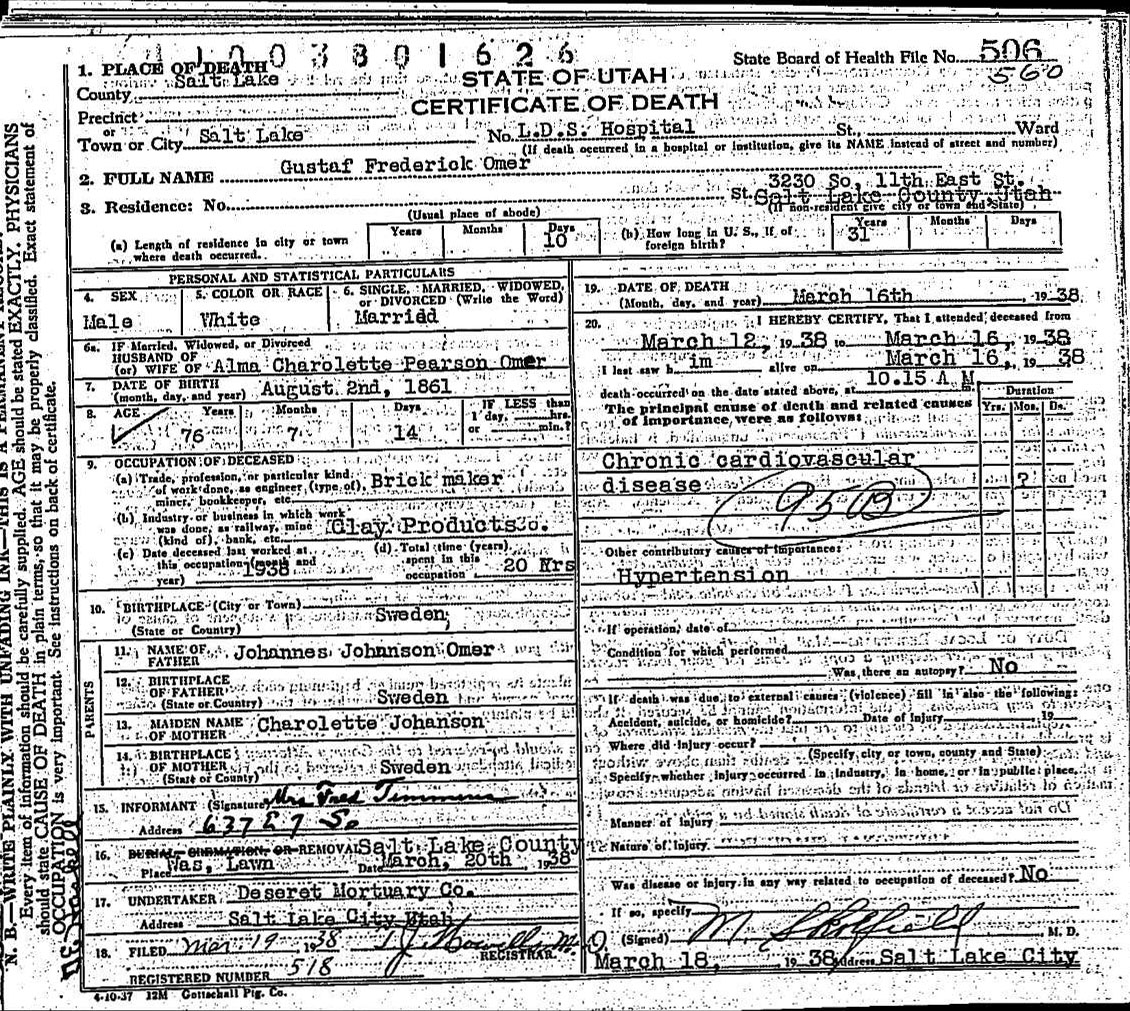 1003801626
State Board of Health File No. 506
560
1. PLACE OF DEATH
STATE OF UTAH
County Salt Lake
CERTIFICATE OF DEATH
Precinct
or
Town or City Salt Lake No. L.D.S. Hospital St., Ward
(If death occurred in a hospital or institution, give its NAME instead of street and number)
2. FULL NAME Gustaf Frederick Omer
3. Residence: No. St. 3230 So, 11th East St.
Salt Lake County, Utah
(Usual place of abode) (If non-resident give city or town and State)
(a) Length of residence in city or town where death occurred. Years Months Days 10
(b) How long in U. S., if of foreign birth? Years 31 Months Days
PERSONAL AND STATISTICAL PARTICULARS
4. SEX
Male
5. COLOR OR RACE
White
6. SINGLE, MARRIED, WIDOWED, or DIVORCED (Write the Word)
Married
6a. IF Married, Widowed, or Divorced
HUSBAND OF
(or) WIFE OF Alma Charolette Pearson Omer
7. DATE OF BIRTH
(month, day, and year) August 2nd, 1861
8. AGE Years Months Days IF LESS than
1 day, hrs.
or min.?
76 7 14
9. OCCUPATION OF DECEASED
(a) Trade, profession, or particular kind
of work done, as engineer (type of),
miner, bookkeeper, etc. Brick maker
(b) Industry or business in which work
was done, as railway, mine
(kind of), bank, etc. Clay Products Co.
(c) Date deceased last worked at
this occupation (month and
year) 1938
(d) Total time (years)
spent in this
occupation 20 Yrs
10. BIRTHPLACE (City or Town)
(State or Country) Sweden
PARENTS
11. NAME OF
FATHER Johannes Johanson Omer
12. BIRTHPLACE
OF FATHER
(State or Country) Sweden
13. MAIDEN NAME
OF MOTHER Charolette Johanson
14. BIRTHPLACE
OF MOTHER
(State or County) Sweden
15. INFORMANT (Signature) Mrs Fred Timmins
Address 637 E 7 So
16. BURIAL, CREMATION, OR REMOVAL Salt Lake County
Place Was, Lawn Date March, 20th 1938
17. UNDERTAKER Deseret Mortuary Co.
Address Salt Lake City Utah
18. FILED Mar. 19 1938 REGISTRAR.
REGISTERED NUMBER 518
4-10-37 12M Gottschall Ptg. Co.
19. DATE OF DEATH
(Month, day, and year) March 16th, 1938
20. I HEREBY CERTIFY, That I attended deceased from
March 12, 1938 to March 16, 1938
I last saw him alive on March 16, 1938
death occurred on the date stated above, at 10.15 A M m.
The principal cause of death and related causes
of importance, were as follows:
Duration
Yrs. Mos. Ds.
Chronic cardiovascular
disease ?
95B
Other contributory causes of importance:
Hypertension
If operation, date of
Condition for which performed
Was there an autopsy? No
If death was due to external causes (violence) fill in also the following:
Accident, suicide, or homicide? Date of injury 19
Where did injury occur?
(Specify city or town, county and State)
Specify whether injury occurred in industry, in home, or in public place.
Manner of injury
Nature of injury
Was disease or injury in any way related to occupation of deceased? No
If so, specify
(Signed) M. M. D.
March 18, 1938 Address Salt Lake City
N. B.—WRITE PLAINLY WITH UNFADING INK—THIS IS A PERMANENT
Every item of information should be carefully supplied. AGE should be stated EXACTLY. PHYSICIANS
should state CAUSE OF DEATH in plain terms, so that it may be properly classified. Exact statement of
OCCUPATION is very important. See instructions on back of certificate.